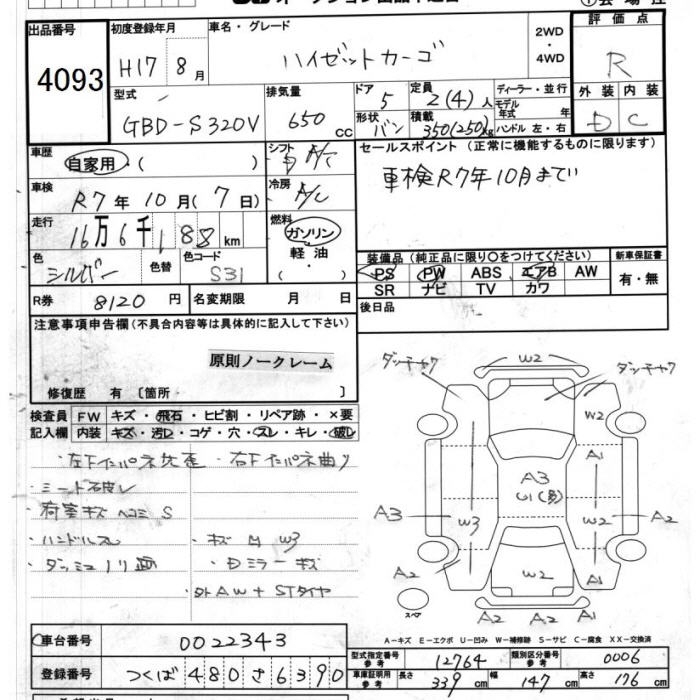 出品番号
4093
初度登録年月
H17 8月
車名・グレード
ハイゼットカーゴ
2WD
・
4WD
評価点
R
外装 内装
D C
型式
GBD-S320V
排気量
650 CC
ドア
5
形状
バン
定員
2(4)人
積載
350(250)kg
ディーラー・並行
モデル年式 年
ハンドル 左・右
車歴
自家用・( )
シフト
A/T
セールスポイント(正常に機能するものに限ります)
車検R7年10月まで
車検
R7年10月(7日)
冷房
A/C
走行
16万6千188km
燃料
ガソリン
軽油
・
色
シルバー
色替
色コード
S31
装備品(純正品に限り○をつけてください)
PS PW ABS エアB AW
SR ナビ TV カワ
新車保証書
有・無
R券 8120円
名変期限 月 日
後日品
注意事項申告欄(不具合内容等は具体的に記入して下さい)
原則ノークレーム
修復歴 有〔箇所 〕
検査員記入欄
FW キズ・飛石・ヒビ割・リペア跡・×要
内装 キズ・汚レ・コゲ・穴・スレ・キレ・破レ
・ミード破レ
・荷室キズ ヘコミ S
・ハンドルスレ
・キズ W3
・Dミラーキズ
・外AW+STタイヤ
ダッチャク
W2
ダッチャク
W2
A1
A3
U1
A3
W3
W2
A2
A2
W2
A1
A2
A2
A1
スペア
A-キズ E-エクボ U-凹み W-補修跡 S-サビ C-腐食 XX-交換済
車台番号
0022343
登録番号
つくば480さ6390
型式指定番号
参考
12764
類別区分番号
参考
0006
車庫証明用
参考
長さ 339cm
幅 147cm
高さ 176cm